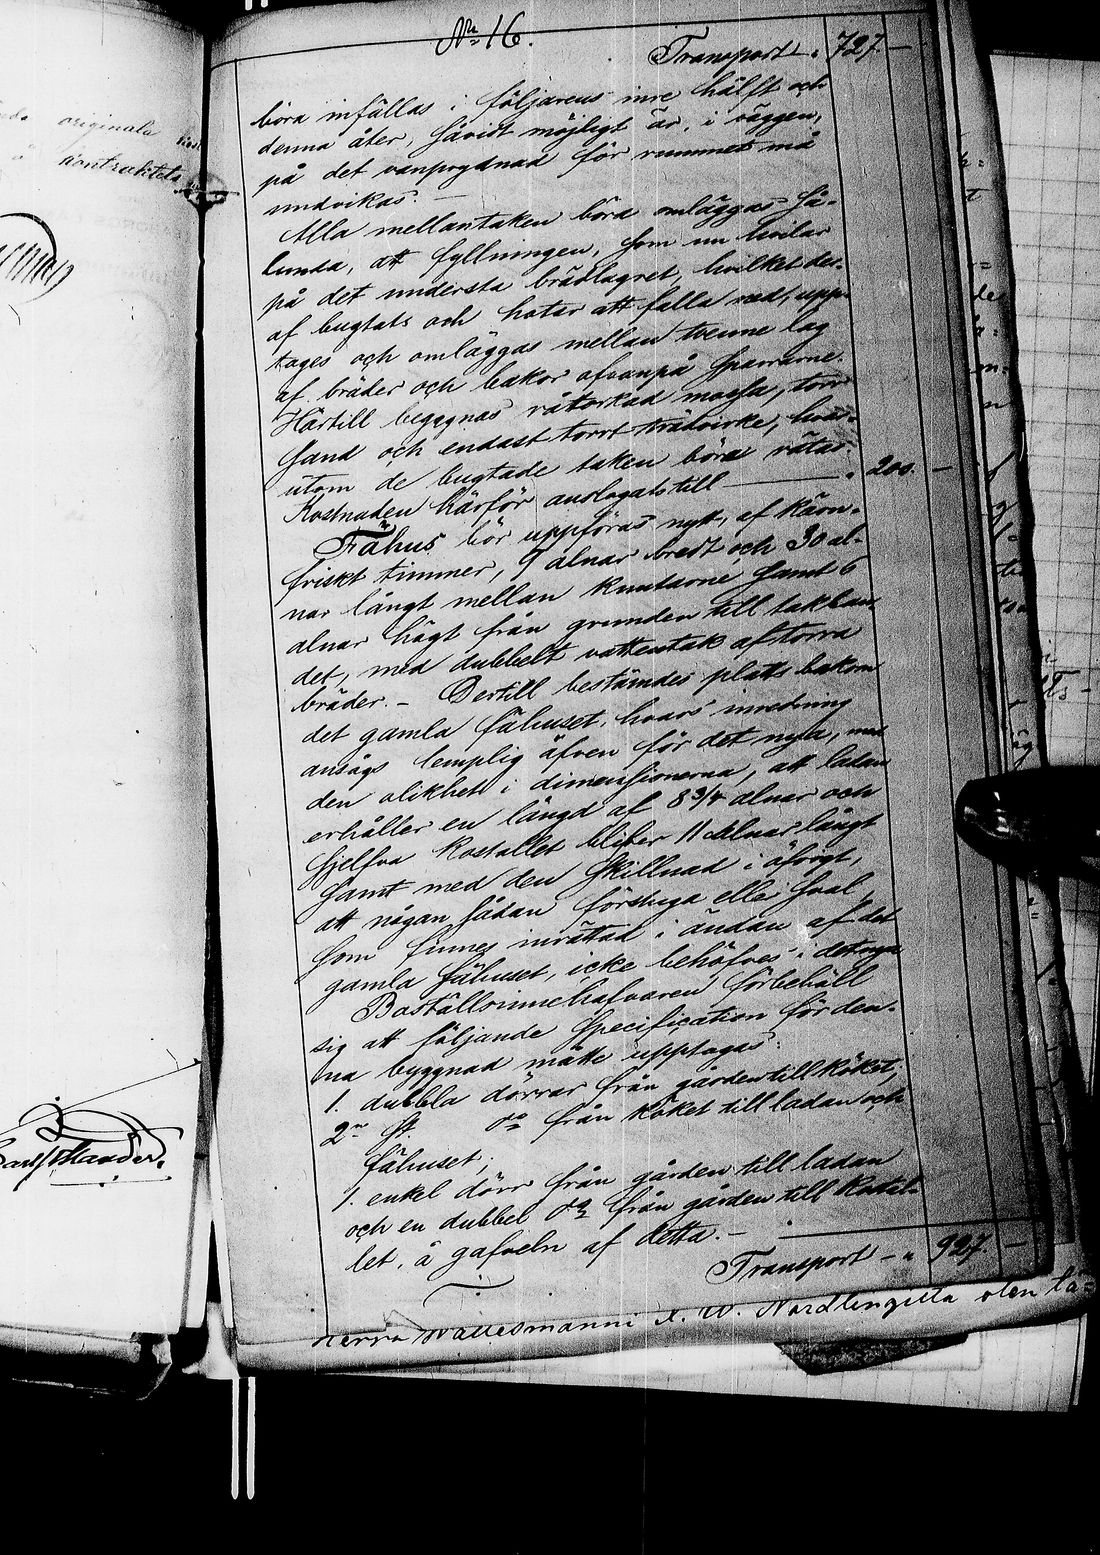 No 16.
Transport „ 727. —
böra infällas i följarens inre hälft och
denna åter, såvidt möjligt är, i väggen,
på det vanprydnad för rummet må
undvikas. —
Alla mellantaken böra omläggas så-
lunda, att fyllningen, som nu hvilar
på det understa brädlagret, hvilket der-
af bugtats och hotar att falla ned, upp-
tages och omläggas mellan tvenne lag
af bräder och bakor ofvanpå sparrarne.
Härtill begagnas våtorkad mossa, torr
sand och endast torrt trävirke, hvar-
utom de bugtade taken böra rätas.
Kostnaden härför anslogats till — „ 200. —
Fähus bör uppföras nytt, af kärn-
friskt timmer, 9 alnar bredt och 30 al-
nar långt mellan knutarne samt 6
alnar högt från grunden till takban
det, med dubbelt vattentak af torra
bräder. — Dertill bestämdes plats bakom
det gamla fähuset, hvars inredning
ansågs lemplig äfven för det nya, med
den olikhet i dimensionerna, att ladan
erhåller en längd af 8 3/4 alnar och
sjelfva kostallet blifver 11 alnar långt
samt med den skillnad i öfrigt,
att någon sådan förstuga eller sval
som finnes inrättad i ändan af det
gamla fähuset, icke behöfves i det nya
Boställsinnehafvaren förbehöll
sig att följande specification för den-
na byggnad måtte upptagas:
1. dubbla dörrar från gården till köket;
2ne st. do från köket till ladan och
fähuset;
1. enkel dörr från gården till ladan
och en dubbel do från gården till kostal-
let, å gafveln af detta. —
Transport — „ 927. —
originala
kontraktets
Herra Wallesmanni K. W. Nordlingilta olen